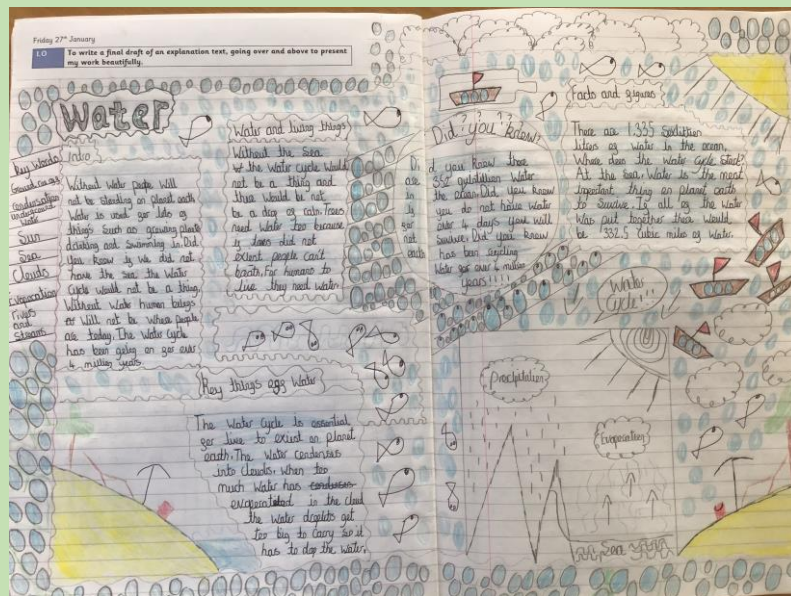 Friday 27th January
LO To write a final draft of an explanation text, going over and above to present
my work beautifully.
Water
Key Words
condensation
underground
water
Sun
Sea
Clouds
Evaporation
rivers
and
streams
Intro
Without water people will
not be standing on planet earth
Water is used for lots of
things such as growing plants
drinking and swimming in. Did
you know if we did not
have the sea the water
cycle would not be a thing.
Without water human beings
will not be where people
are today. The water cycle
has been going on for over
4 million years.
Water and living things
Without the sea
the water cycle would
not be a thing and
there would be not
be a drop of rain. Trees
need water too because
if trees did not
exist people can't
breath. For humans to
live they need water.
Key things of water
The water cycle is essential
for live to exist on planet
earth. The water condenses
into clouds. When too
much water has condenses
evaporated in the cloud
the water droplets get
too big to carry so it
has to drop the water.
Did you know?
Did you know there
are
in the ocean. Did you know
if you do not have water
for over 4 days you will
not survive. Did you know
earth has been recycling
water for over 4 million
years!!!!
Facts and figures
There are 1.335 sextillion
liters of water in the ocean,
Where does the water cycle start?
At the sea. Water is the most
important thing on planet earth
to survive. If all of the water
was put together there would
be 332.5 cubic miles of water.
Water
Cycle!!!
Precipitation
Evaporation
Sea